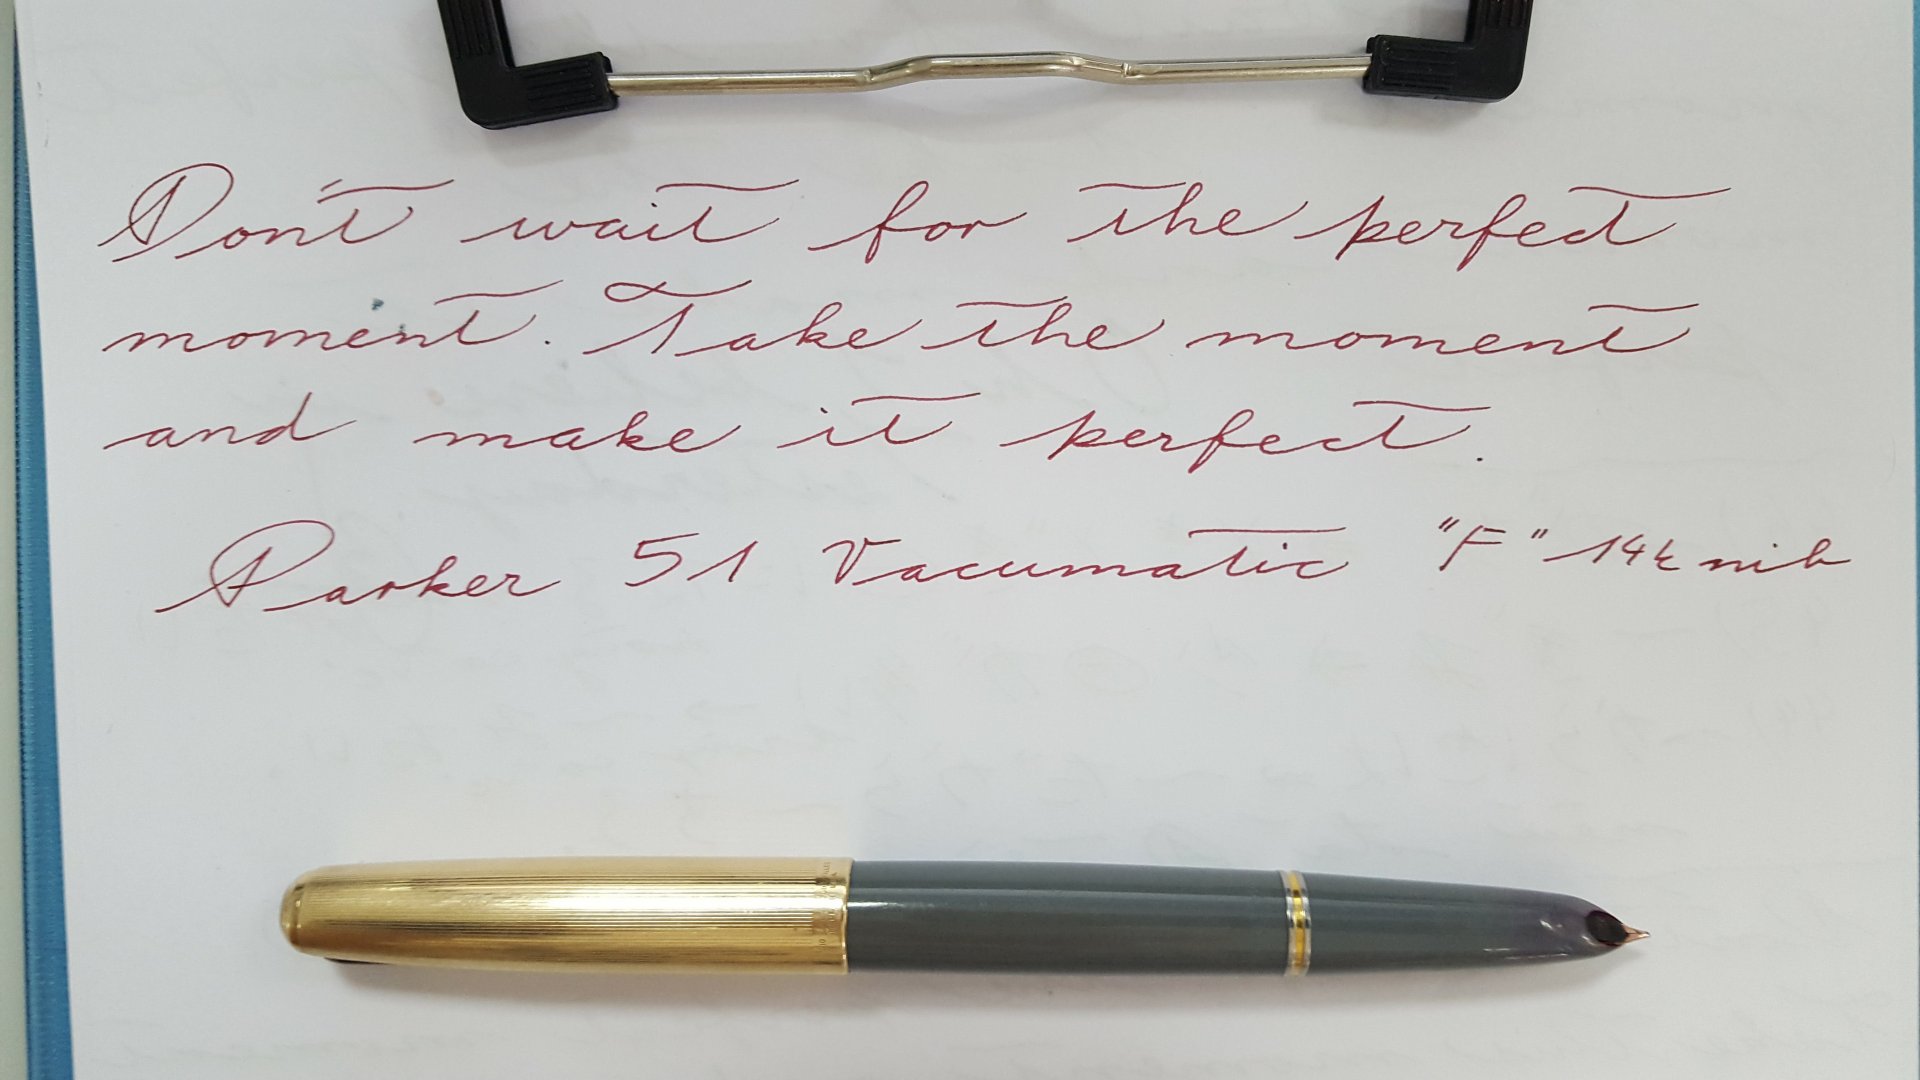 Don't wait for the perfect
moment. Take the moment
and make it perfect.
Parker 51 Vacumatic "F" 14k nib